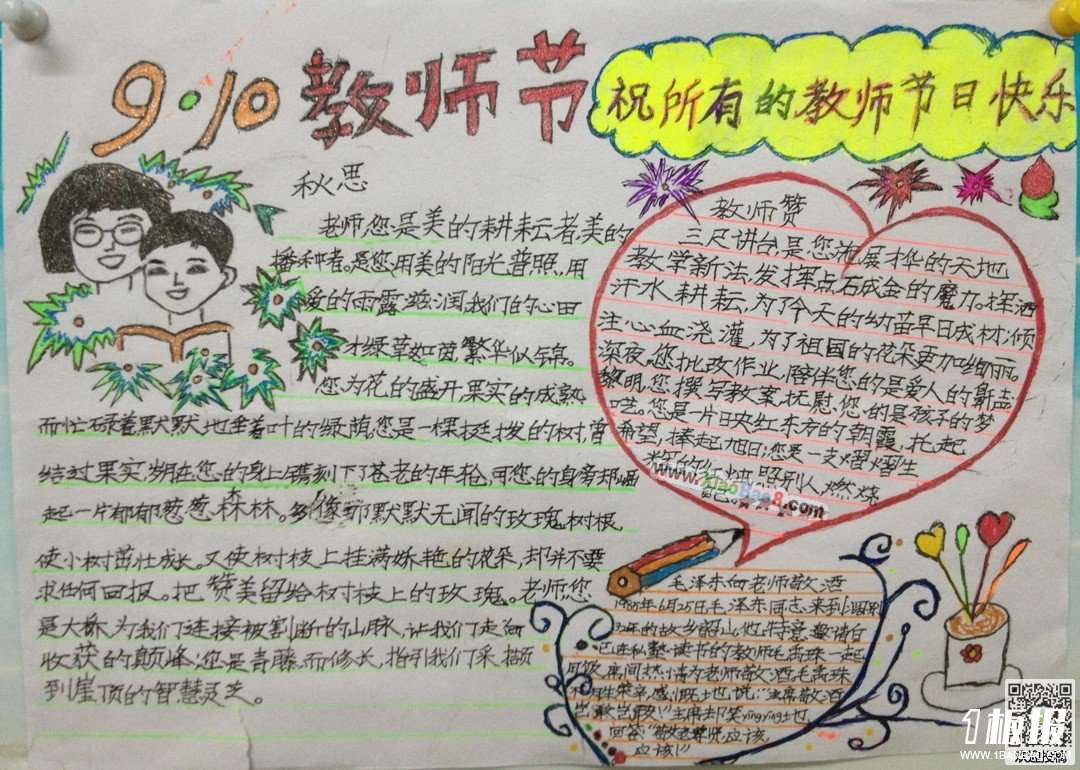 9·10 教师节
祝所有的教师节日快乐
秋思
老师,您是美的耕耘者,美的
播种者。是您用美的阳光普照,用
爱的雨露滋润,我们的心田
才绿草如茵,繁华似锦。
您为花的盛开,果实的成熟
而忙碌着默默地垂着叶的绿荫。您是一棵挺拔的树,曾
结过果实,岁月在您的身上镌刻下了苍老的年轮,用您的身旁却崛
起一片郁郁葱葱森林。多像那默默无闻的玫瑰树根,
使小树茁壮成长。又使树枝上挂满娇艳的花朵,却并不要
求任何回报。把赞美留给树枝上的玫瑰。老师,您
是大桥,为我们连接被割断的山脉,让我们走向
收获的巅峰;您是青藤而修长,指引我们采撷
到崖顶的智慧灵芝。
教师赞
三尺讲台,是您施展才华的天地,
教学新法,发挥点石成金的魔力。挥洒
汗水耕耘,为了今天的幼苗早日成材;倾
注心血浇灌,为了祖国的花朵更加绚丽。
深夜,您批改作业,陪伴您的是爱人的鼾声;
黎明,您撰写教案,抚慰您的是孩子的梦
呓。您是一片映红东方的朝霞,托起
希望,捧起旭日;您是一支熠熠生
辉的红烛,照别人,燃烧
自己。
www.XiaoBao8.com
毛泽东向老师敬酒
6月25日毛泽东同志来到阔别
32年的故乡韶山,他特意邀请自
己进私塾读书的教师毛禹珠一起
用饭,席间热情为老师敬酒,毛禹珠
感慨地说:"主席敬酒,
岂敢岂敢!"主席却笑yingying地
回答:"敬老尊贤应该
应该!"
1板报
WWW.1BANBAO.COM
欢迎投稿